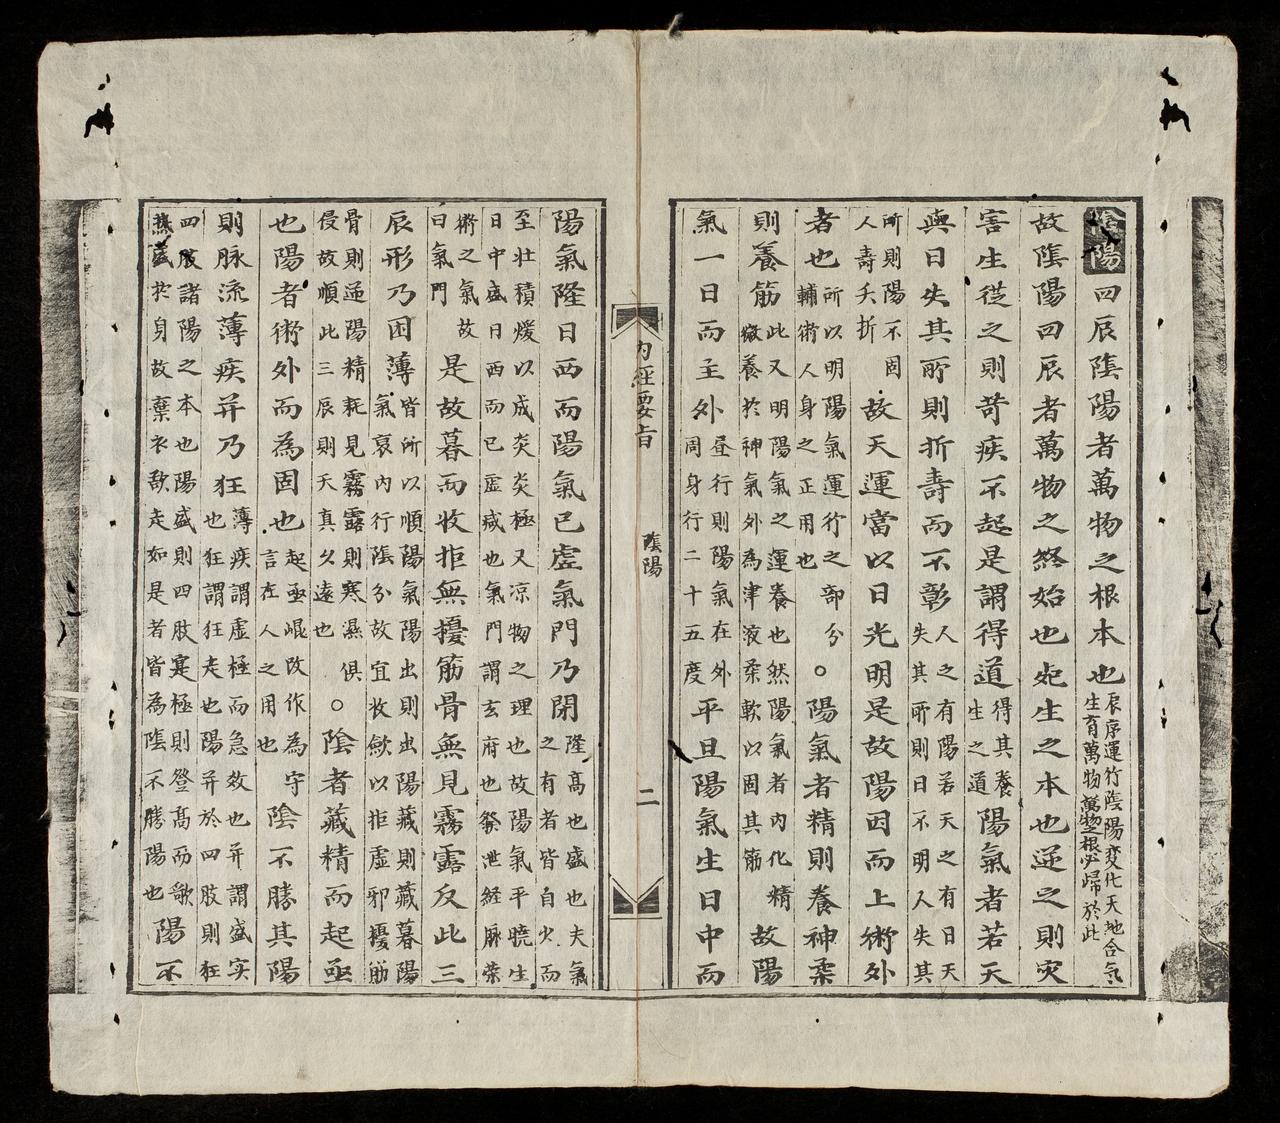 陰陽四辰隂陽者萬物之根本也
辰序運竹隂陽変化天地合氣
生育萬物萬物之根必歸於此
故隂陽四辰者萬物之終始也死生之本也逆之則灾
害生從之則苛疾不起是謂得道
得其養
生之道
陽氣者若天
與日失其所則折壽而不彰
人之有陽若天之有日天
失其所則日不明人失其
所則陽不固
人壽夭折
故天運當以日光明是故陽因而上術外
者也
所以明陽氣運行之部分
輔術人身之正用也
○陽氣者精則養神柔
則養筋
此又明陽氣之運養也然陽氣者内化精
微養於神氣外為津液柔軟以固其筋
故陽
氣一日而主外
昼行則陽氣在外
周身行二十五度
平旦陽氣生日中而
内經要旨
隂陽
二
陽氣隆日西而陽氣已虚氣門乃閉
隆高也盛也夫氣
之有者皆自少而
至壮積煖以成炎炎極又凉物之理也故陽氣平曉生
日中盛日西而已虚减也氣門謂玄府也發泄經脉荣
術之氣故
曰氣門
是故暮而收拒無擾筋骨無見霧露反此三
辰形乃困薄
皆所以順陽氣陽出則出陽藏則藏暮陽
氣衰内行隂分故宜收斂以拒虚邪擾筋
骨則逆陽精耗見霧露則寒濕俱
侵故順此三辰則天真久遠也
○陰者藏精而起亟
也陽者術外而為固也
起亟崐改作為守
言在人之用也
陰不勝其陽
則脉流薄疾并乃狂
薄疾謂虚極而急数也并謂盛实
也狂謂狂走也陽并於四肢則狂
四肢諸陽之本也陽盛則四肢寔極則登髙而歌
熱盛於身故棄衣欲走如是者皆為隂不勝陽也
陽不